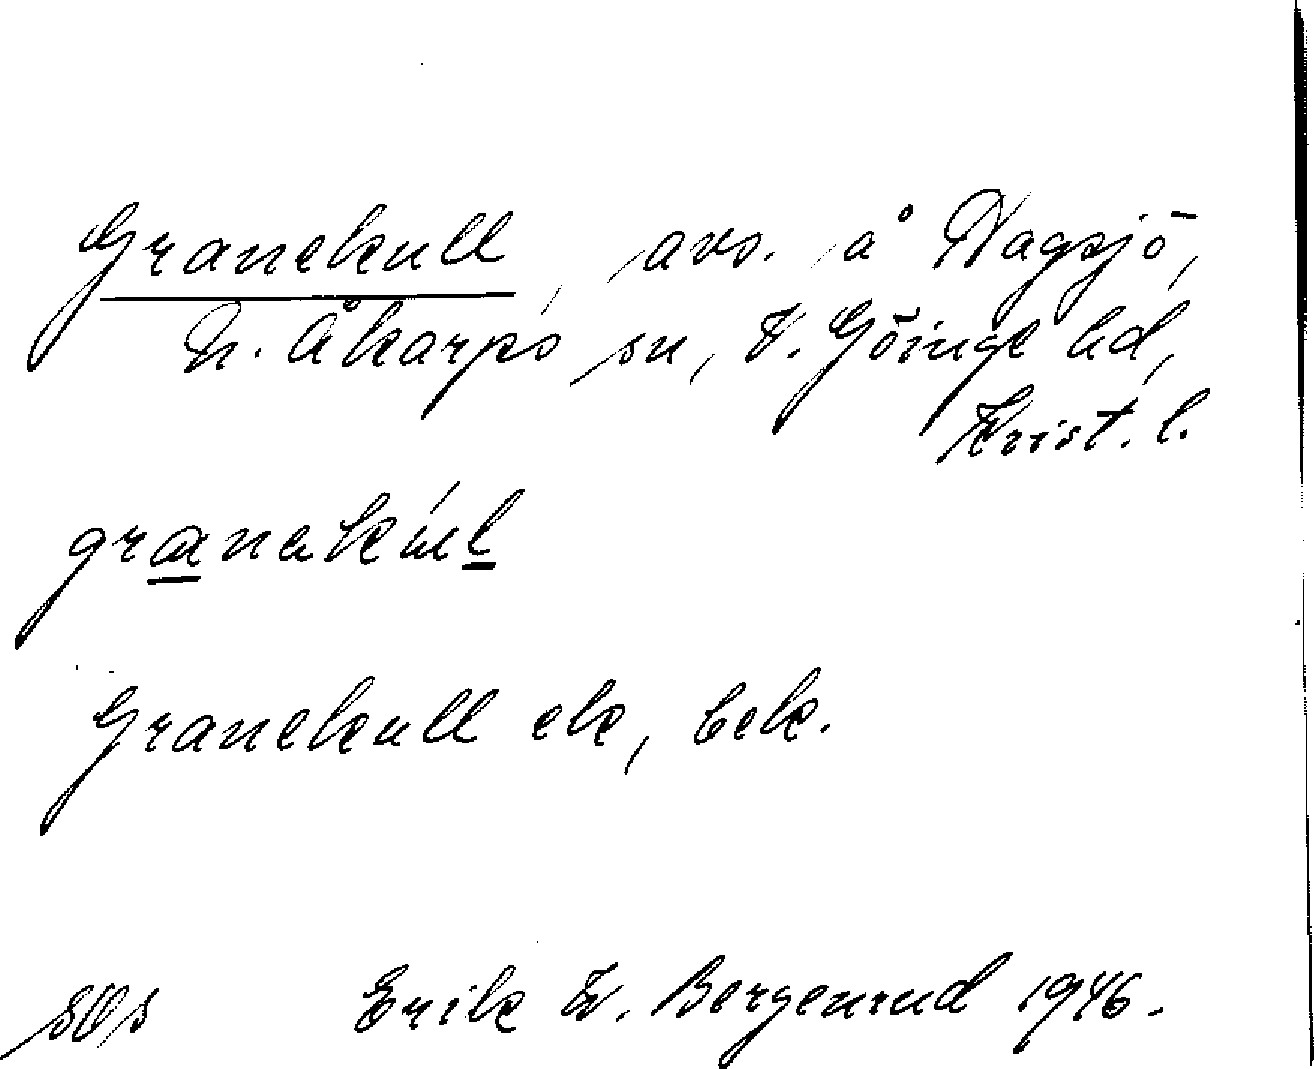 Granekull, avs. å Nagsjö,
N. Åkarps sn, V. Göinge hd,
Krist. l.
Granekull ek, bek.
Erik W. Bergenrud 1946.